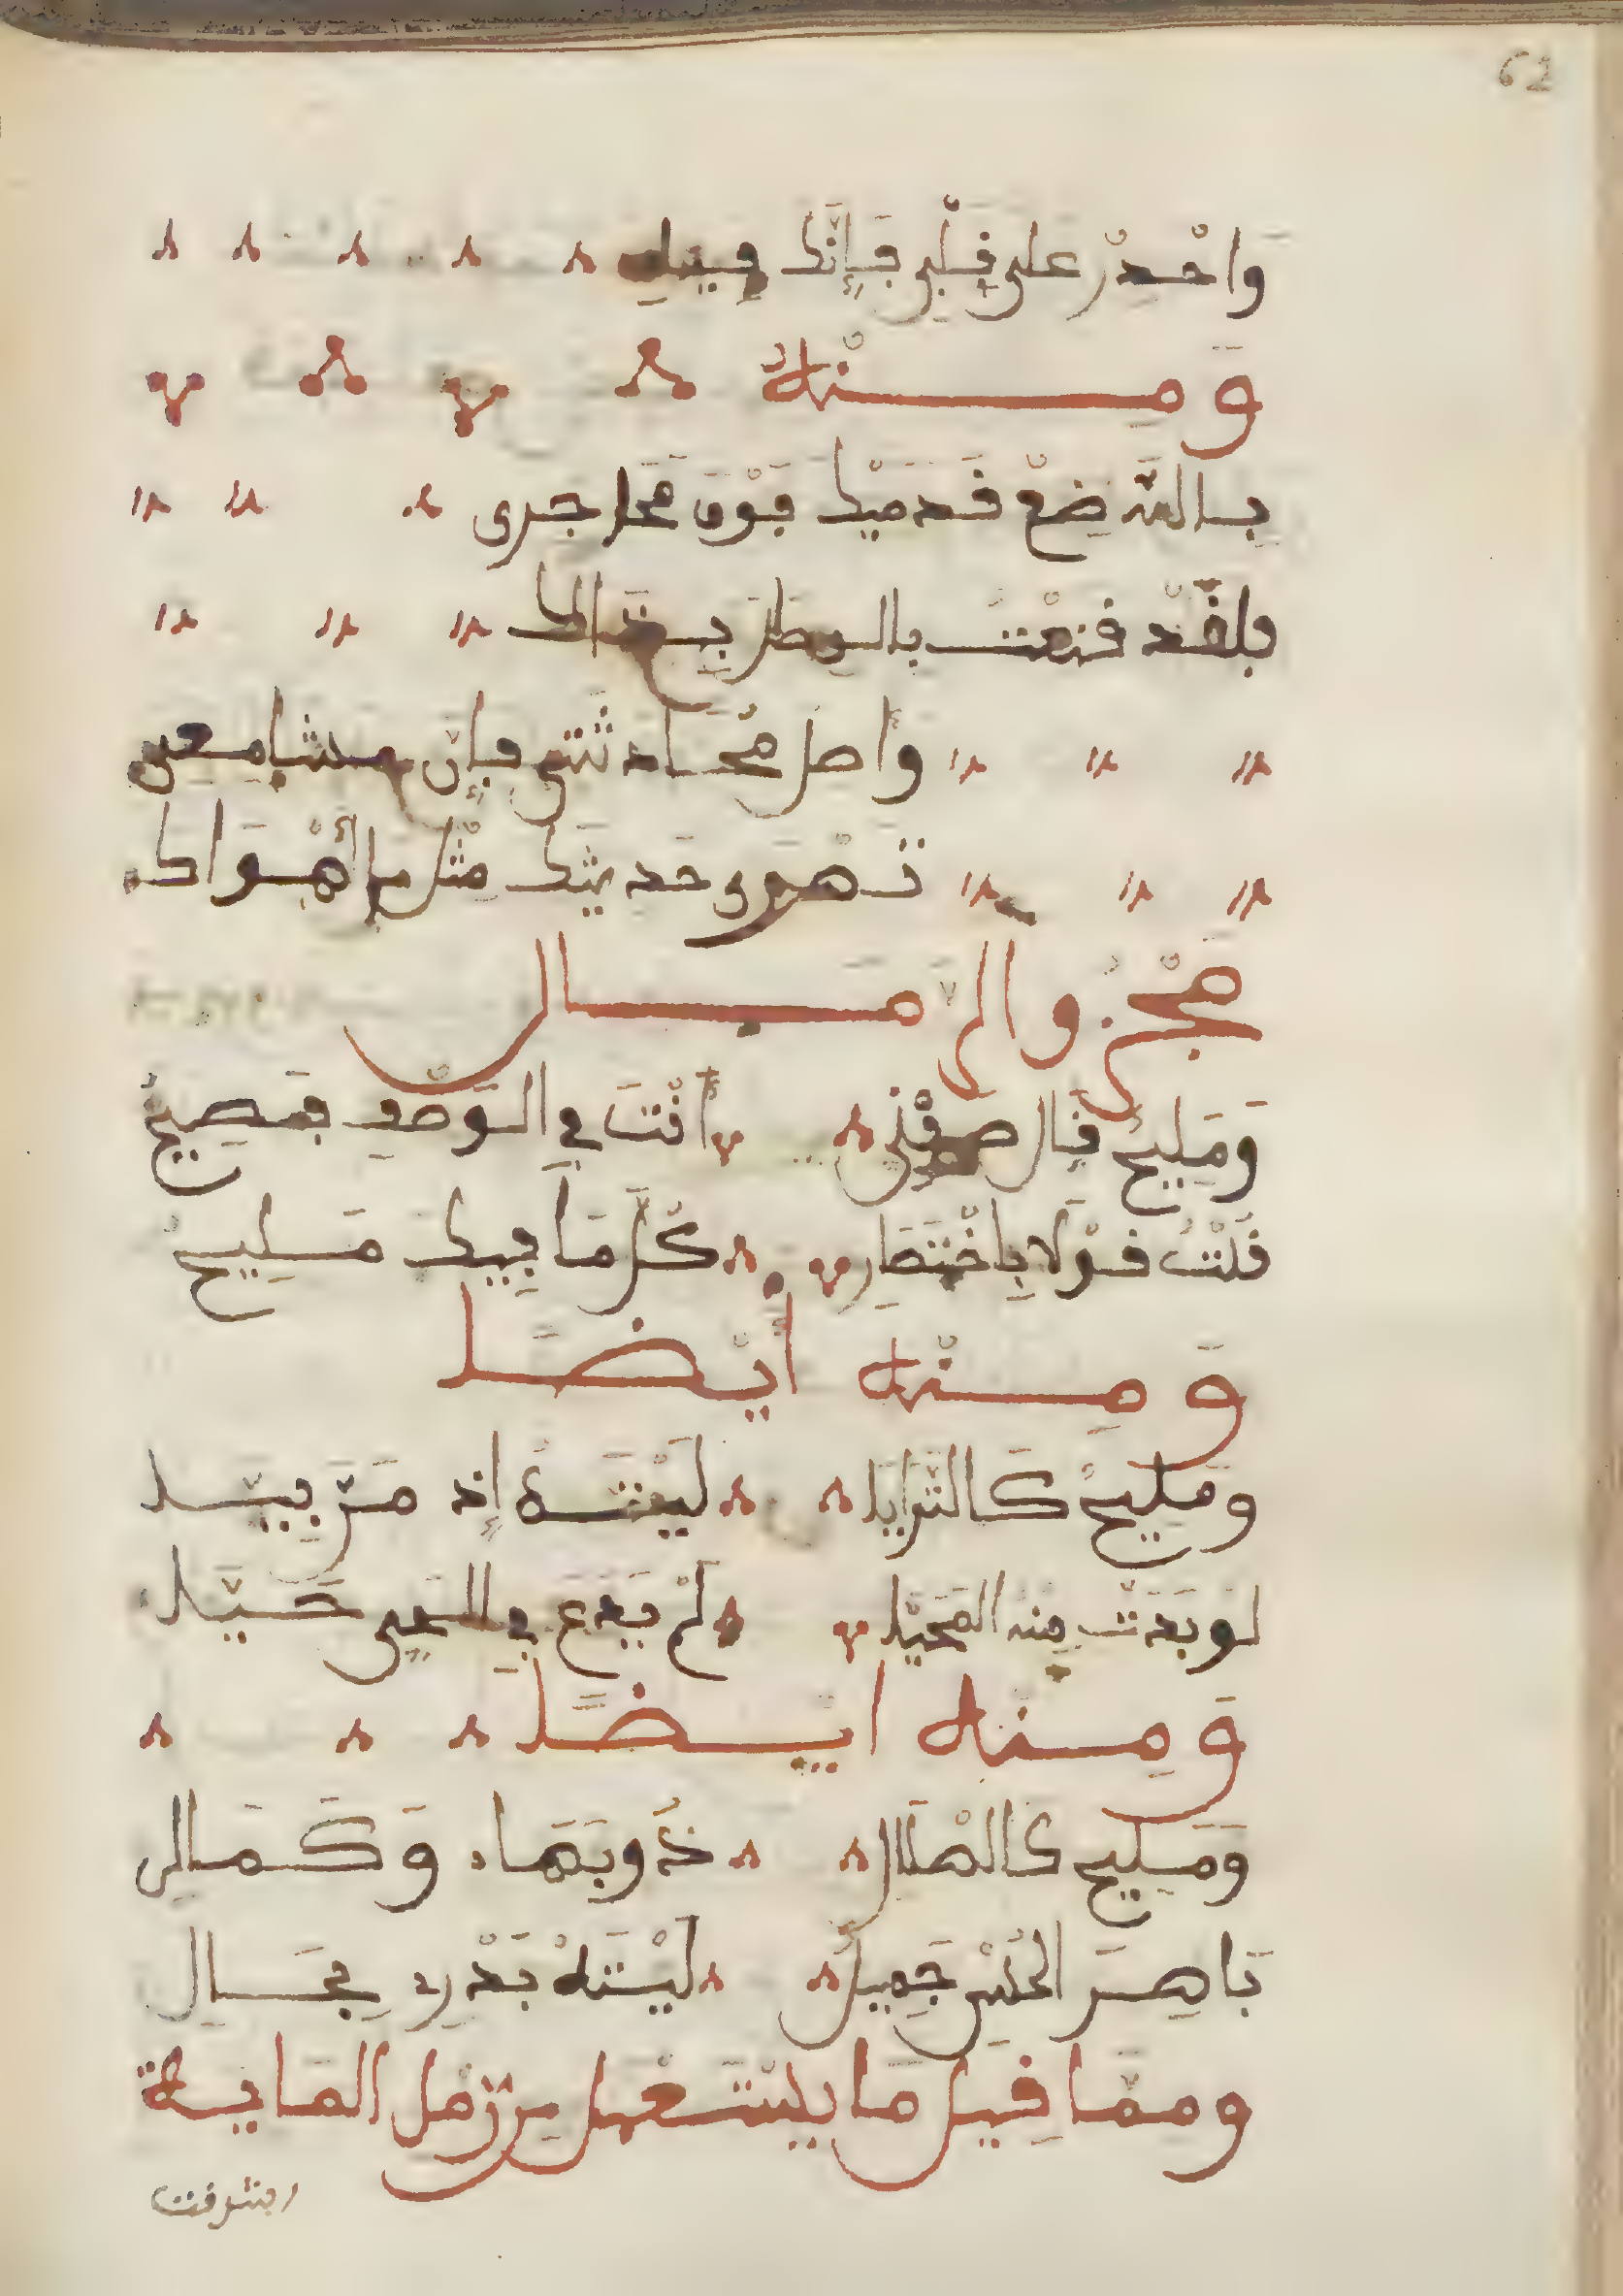 62
وَاحْذَرْ عَلَى قَلْبِي فَإِنَّكَ فِيهِ
وَمِنْهُ
بِاللَّهِ ضَعْ قَدَمَيْكَ فَوْقَ مَحَاجِرِي
فلقَدْ قنعْتُ بالوصل بذاك
وأصل مُحَادثتي فإن مشامعي
تَهْوَى حَدِيثَكَ مِثْلَ مَا أَهْوَاكَ
مَجْزُو الرَّمَال
وَمَلِيحٍ قَالَ صِفْنِي أَنْتَ فِي الوَصْفِ فَصِيحُ
قُلْتُ قَوْلًا بِاخْتِصَارِ كُلُّ مَا فِيكَ مَلِيحُ
وَمِنْهُ أَيْضًا
وَمَلِيحٌ كَالثُّرَيَّا لَيْتَهُ إِذ مَرَّ بِيَّا
لَوْ بَدَتْ مِنْهُ المُحَيَّا لَمْ يَدَعْ فِي الحَيِّ حَيَّا
وَمِنْهُ أَيْضًا
وَمَلِيحٍ كَالهْلَالِ ذُو بَهَاءٍ وَكَمَالِ
بَاهِرَ الحُسْنِ جَمِيلٌ لَيْتَهُ بَدْرِي بِحَالِ
ومما قِيلَ مَا يسْتَعْمل من زمل المَايَة
اشرقت